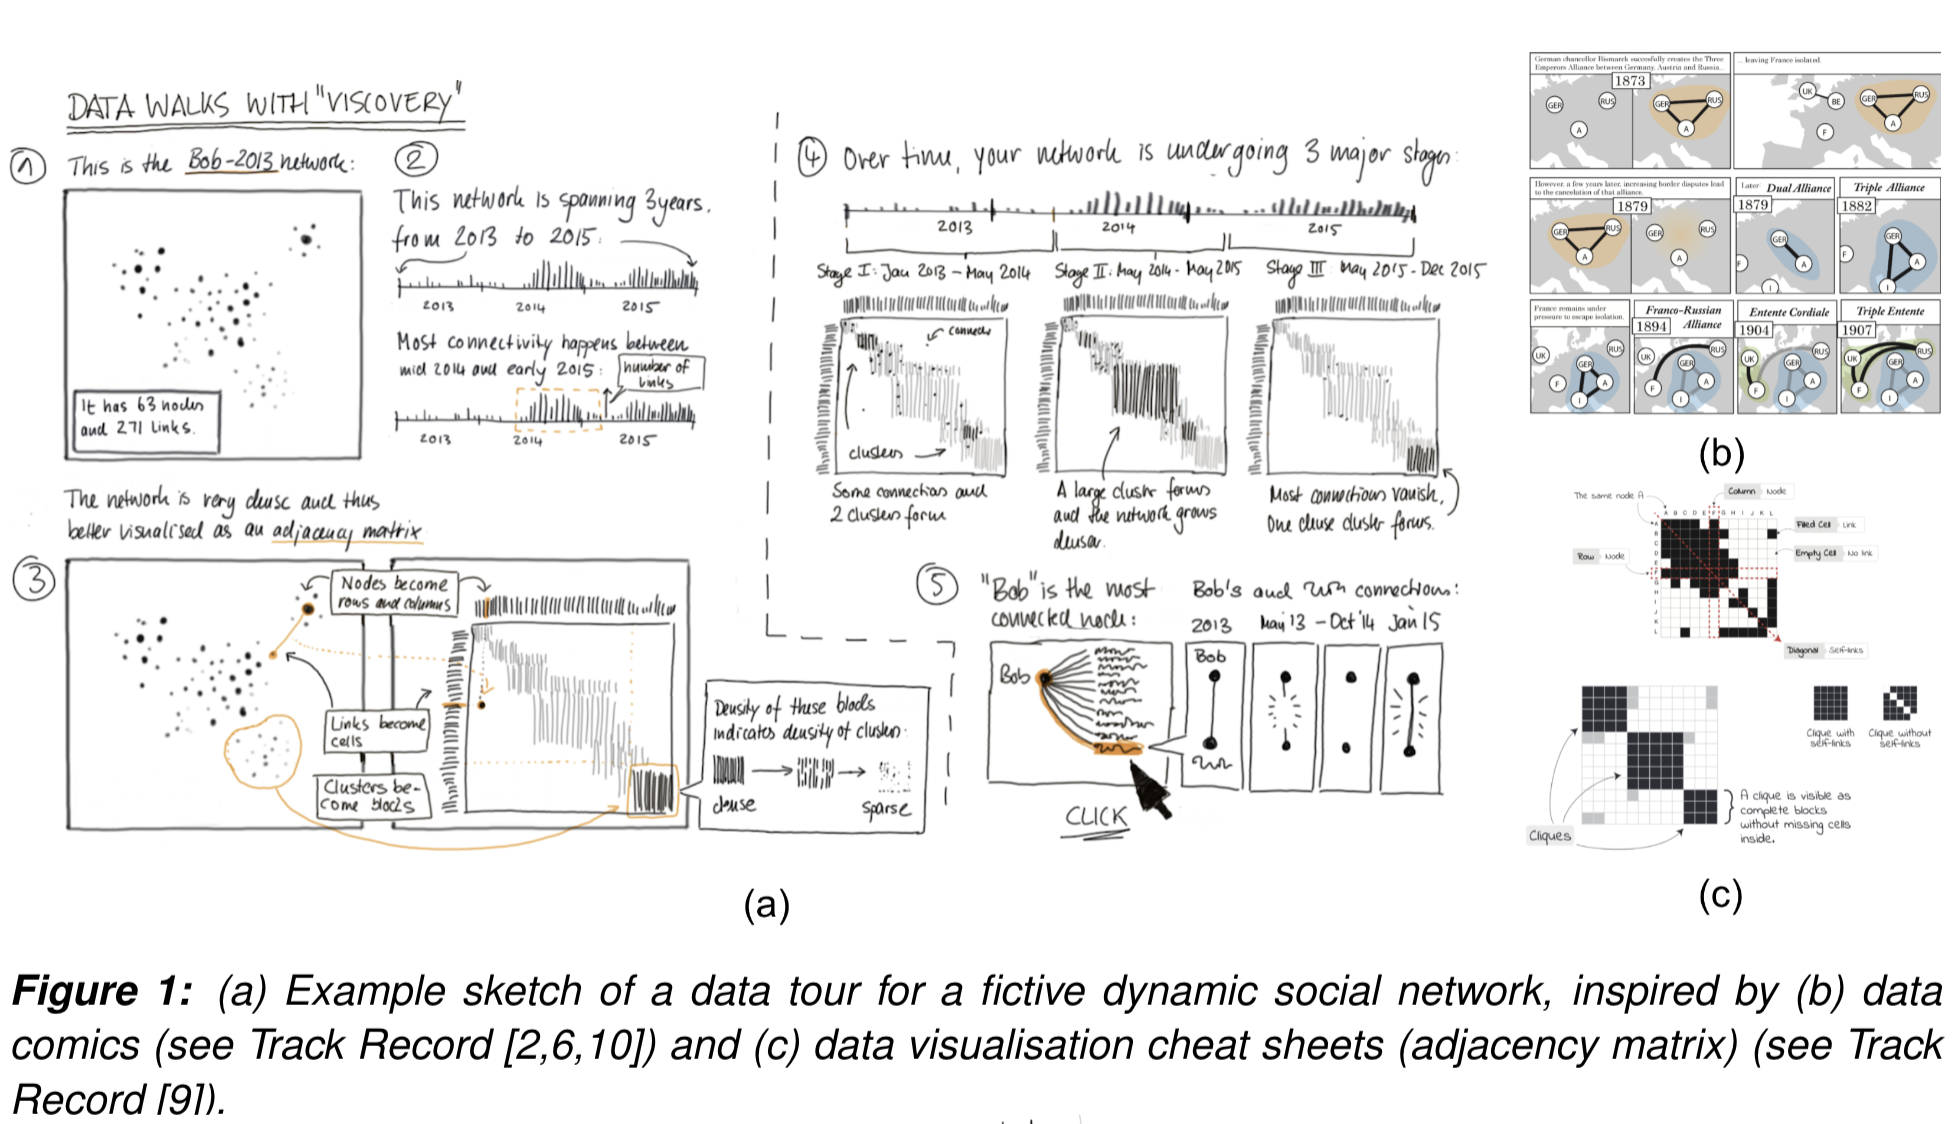 DATA WALKS WITH "VISCOVERY"
1 This is the Bob-2013 network:
It has 63 nodes
and 271 links.
2
This network is spanning 3 years,
from 2013 to 2015:
2013 2014 2015
Most connectivity happens between
mid 2014 and early 2015:
number of
links
2013 2014 2015
The network is very dense and thus
better visualised as an adjacency matrix
3
Nodes become
rows and columns
Links become
cells
Clusters be-
come blocks
Density of these blocks
indicates density of cluster:
dense
sparse
4 Over time, your network is undergoing 3 major stages:
2013 2014 2015
Stage I: Jan 2013 - May 2014
Stage II: May 2014 - May 2015
Stage III: May 2015 - Dec 2015
clusters
Some connections and
2 clusters form
A large cluster forms
and the network grows
denser.
Most connections vanish,
One dense cluster forms.
5 "Bob" is the most
connected node:
Bob
CLICK
Bob's and connections:
2013 May'13 - Oct'14 Jan'15
Bob
(a)
German chancellor Bismarck successfully creates the Three
Emperors Alliance between Germany, Austria and Russia...
1873
GER RUS A
GER RUS A
... leaving France isolated.
UK BE F GER RUS A
However, a few years later, increasing border disputes lead
to the cancelation of that alliance.
1879
GER RUS A
GER RUS A
Later: Dual Alliance
1879
GER A F I
Triple Alliance
1882
GER A F I
France remains under
pressure to escape isolation.
UK RUS GER F A I
Franco-Russian
1894 Alliance
UK RUS GER F A I
Entente Cordiale
1904
UK RUS GER F A I
Triple Entente
1907
UK RUS GER F A I
(b)
The same node A
Column Node
A B C D E F G H I J K L
Filled Cell Link
Empty Cell No link
Row Node
A
B
C
D
E
F
G
H
I
J
K
L
Diagonal Self-links
Clique with
self-links
Clique without
self-links
A clique is visible as
complete blocks
without missing cells
inside.
Cliques
(c)
Figure 1: (a) Example sketch of a data tour for a fictive dynamic social network, inspired by (b) data
comics (see Track Record [2,6,10]) and (c) data visualisation cheat sheets (adjacency matrix) (see Track
Record [9]).